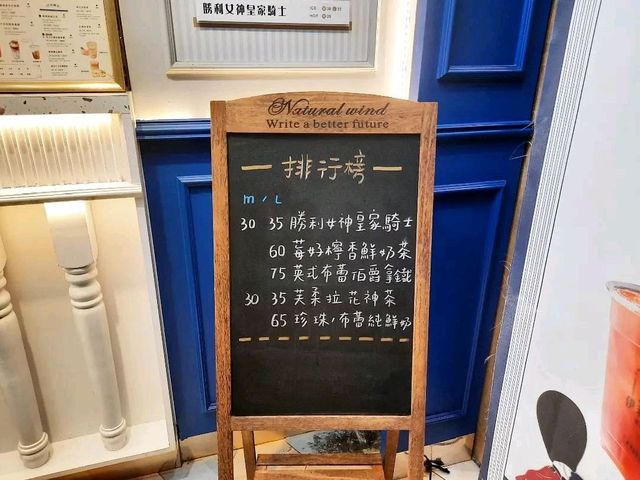 勝利女神皇家騎士
Natural wind
Write a better future
排行榜
M / L
30 35 勝利女神皇家騎士
60 莓好檸香鮮奶茶
75 英式布蕾伯爵拿鐵
30 35 芙柔拉花神茶
65 珍珠/布蕾純鮮奶